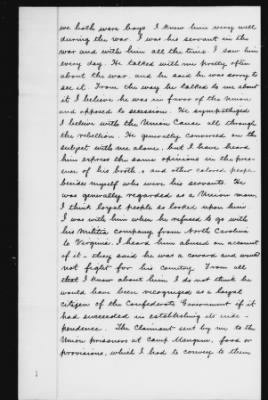 we both were boys I knew him very well
during the war. I was his servant in the
war and with him all the time I saw him
every day. He talked with me pretty often
about the war, and he said he was sorry to
see it. From the way he talked to me about
it I believe he was in favor of the Union
and opposed to secession. He sympathized
I believe with the Union Cause all through
the rebellion. He generally conversed on the
subject with me alone, but I have heard
him express the same opinions in the pres-
ence of his both, and other colored people
besides myself who were his servants. He
was generally regarded as a Union man,
I think loyal people so looked upon him
I was with him when he refused to go with
his Militia company from North Carolina
to Virginia. I heard him abused on account
of it - they said he was a coward and would
not fight for his country. From all
that I know about him I do not think he
would have been recognized as a loyal
citizen of the Confederate Government if it
had succeeded in establishing its inde-
pendence. The Claimant sent by me to the
Union prisoners at Camp Mangum, food or
provisions, which I had to convey to them